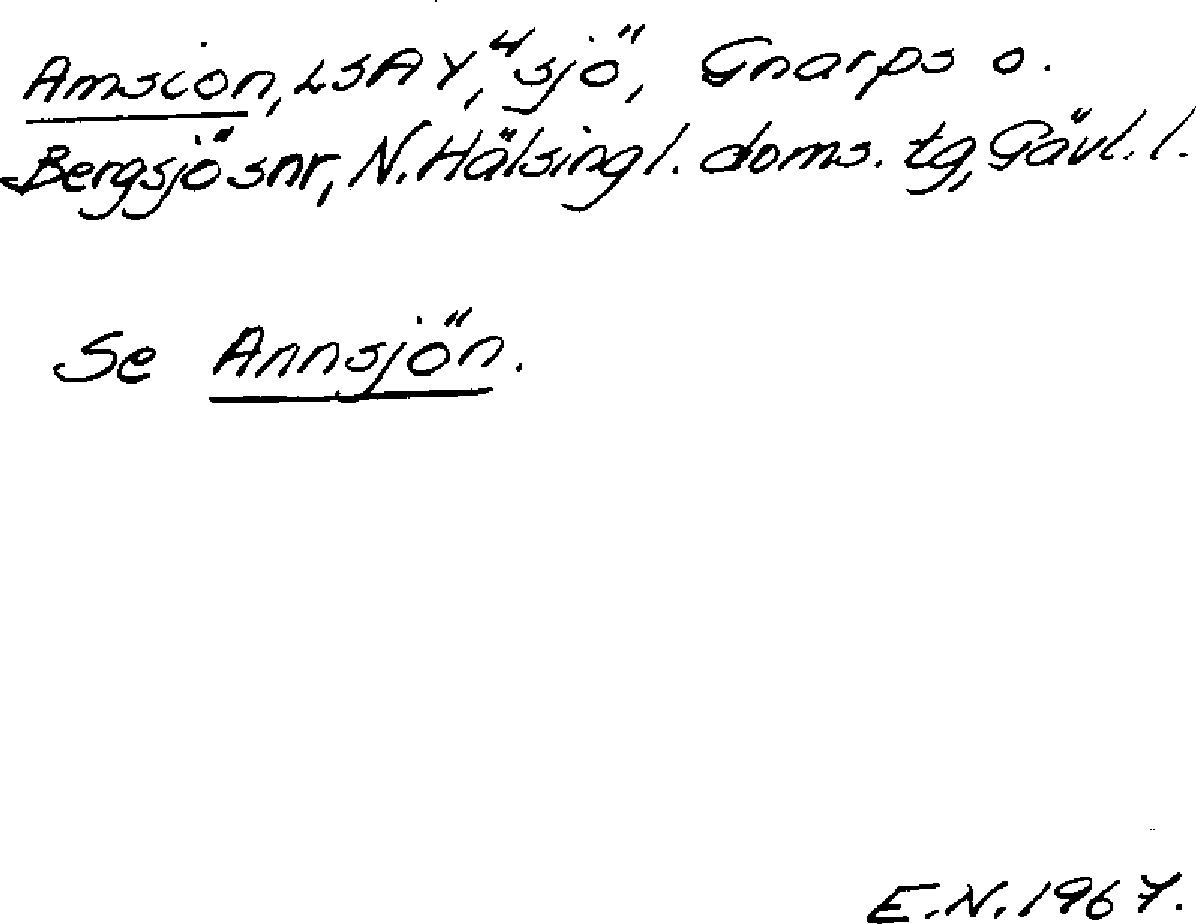 Amscion, LSA Y, sjö, Gnarps o.
Bergsjö snr, N. Hälsingl. doms. tg, Gävl. l.
Se Annsjön.
E.N. 1967.